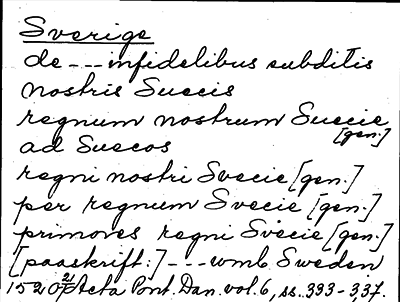 Sverige
de --- infidelibus subditis
nostris Suecis
regnum nostrum Suecie
[gen.]
ad Suecos
regni nostri Svecie [gen.]
per regnum Svecie [gen.]
primores regni Svecie [gen.]
[paaskrift:] --- wmb Sweden
1520 21/7 Acta Pont. Dan. vol. 6, ss. 333-337.